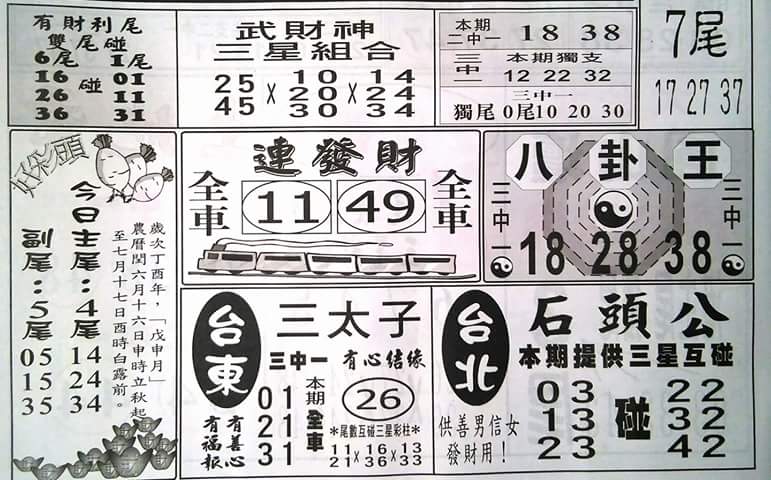 有財利尾
雙尾碰
6尾 1尾
16 碰 01
26 11
36 31
武財神
三星組合
25 × 10 × 14
45 20 24
30 34
本期二中一 18 38
三中一 本期獨支
12 22 32
三中一
獨尾 0尾10 20 30
7尾
17 27 37
好彩頭
今日主尾：4尾
14
24
34
副尾：5尾
05
15
35
歲次丁酉年，「戊申月」
農曆閏六月十六日申時立秋起
至七月十七日酉時白露前。
連發財
全車 11 49 全車
八卦王
三中一 三中一
18 28 38
台東
三太子
三中一 有心結緣
01
21
31
本期全車
26
*尾數互碰三星彩柱*
11×16×13
21×36×33
有善心
有福報
台北
石頭公
本期提供三星互碰
03 22
13 碰 32
23 42
供善男信女
發財用！